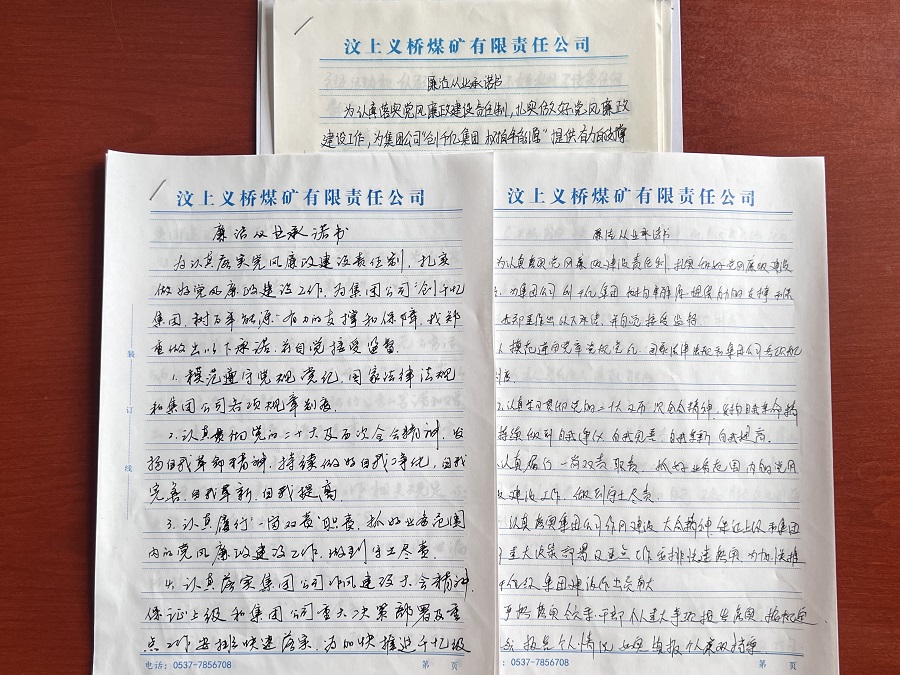 汶上义桥煤矿有限责任公司
廉洁从业承诺书
为认真落实党风廉政建设责任制,扎实做好党风廉政
建设工作,为集团公司"创千亿集团 树百年能源"提供有力的支撑
汶上义桥煤矿有限责任公司
廉洁从业承诺书
为认真落实党风廉政建设责任制,扎实
做好党风廉政建设工作,为集团公司"创千亿
集团,树百年能源"有力的支撑和保障,我郑
重做出以下承诺,并自觉接受监督.
1.模范遵守党规党纪,国家法律法规
和集团公司各项规章制度.
2.认真贯彻党的二十大及历次全会精神,发
扬自我革命精神,持续做好自我净化,自我
完善,自我革新,自我提高
3.认真履行"一岗双责"职责,抓好业务范围
内的党风廉政建设工作,做到守土尽责.
4.认真落实集团公司作风建设大会精神,
保证上级和集团公司重大决策部署及重
点工作安排快速落实,为加快推进千亿级
电话:0537-7856708
第 页
汶上义桥煤矿有限责任公司
廉洁从业承诺书
为认真落实党风廉政建设责任制,扎实做好党风廉政建设
为集团公司创千亿集团 树百年能源提供有力的支撑和保
郑重作出以下承诺,并自觉接受监督.
1.模范遵守党章党规党纪,国家法律法规和集团公司各项规
制度.
2.认真学习贯彻党的二十大及历次全会精神,发扬自我革命精
持续做到自我净化 自我完善 自我革新 自我提高.
认真履行一岗双责职责 抓好业务范围内的党风
建设工作,做到守土尽责.
认真落实集团公司作风建设大会精神,保证上级和集团
重大决策部署及重点工作安排快速落实,为加快推
千亿级集团建设作出贡献
严格落实领导干部个人重大事项报告制度,
报告个人情况
:0537-7856708
第 页